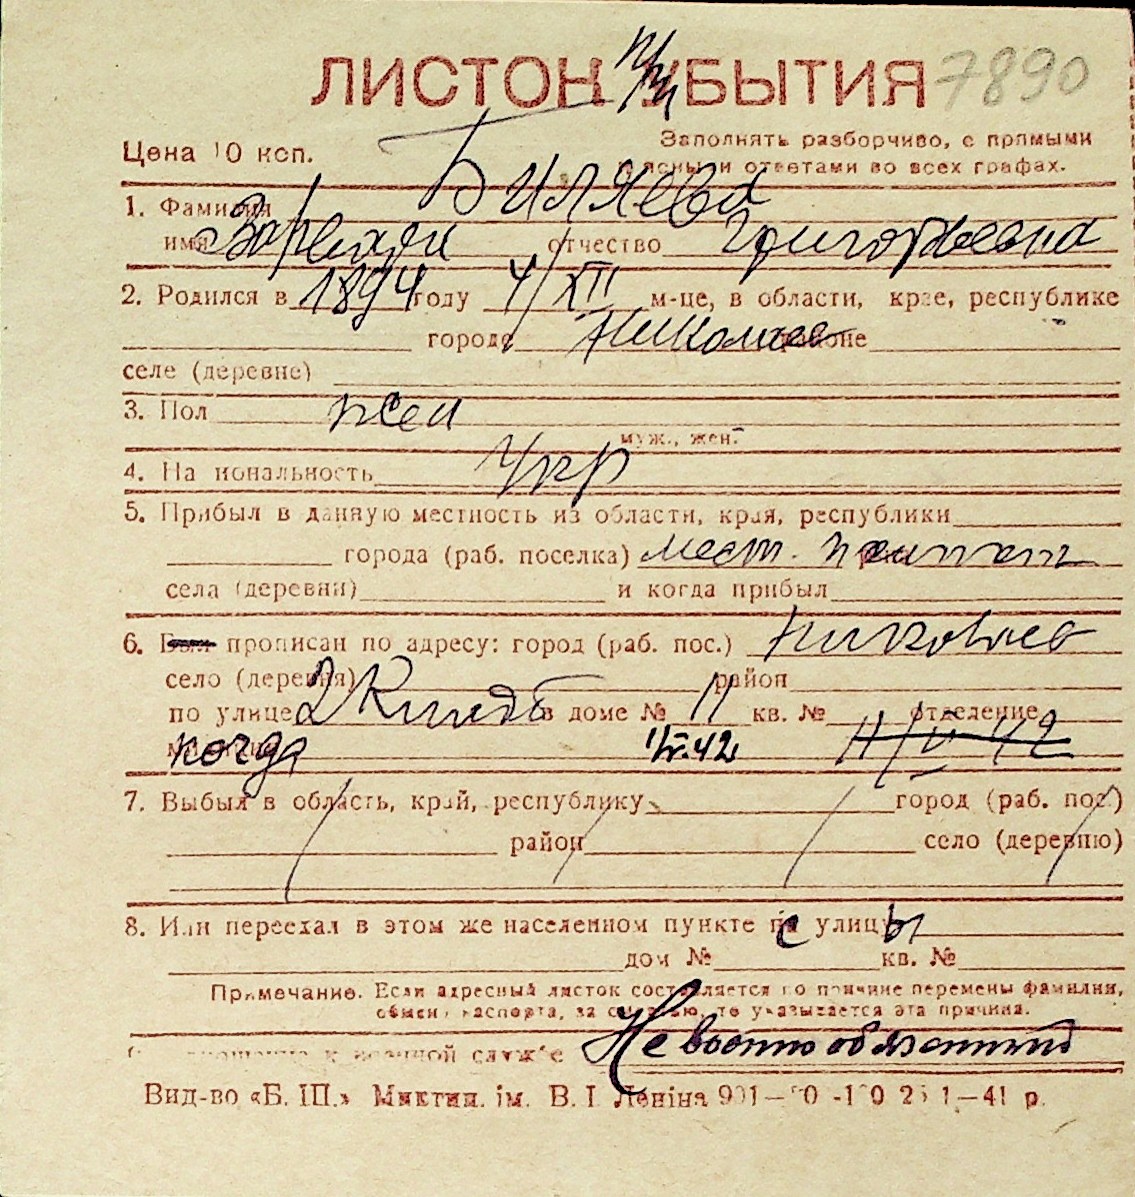 ЛИСТОК УБЫТИЯ 7890
Цена 10 коп.
Заполнять разборчиво, с прямыми
и ясными ответами во всех графах.
1. Фамилия Биляева
имя Варвара отчество Григорьевна
2. Родился в 1894 году 4/XII м-це, в области, крае, республике
городе Николаев районе
селе (деревне)
3. Пол жен
муж., жен.
4. Национальность укр
5. Прибыл в данную местность из области, края, республики
города (раб. поселка) мест.
села (деревни) и когда прибыл
6. Был прописан по адресу: город (раб. пос.) Николаев
село (деревня) район
по улице 2 в доме № 11 кв. № отделение
когда
7. Выбыл в область, край, республику город (раб. пос.)
район село (деревню)
8. Или переехал в этом же населенном пункте с улицы
дом № кв. №
Примечание. Если адресный листок составляется по причине перемены фамилии,
обмена паспорта, за сменою, то указывается эта причина.
к военной службе Не военнообязанный
Вид-во «Б. Ш.» Миктип. ім. В. І Леніна